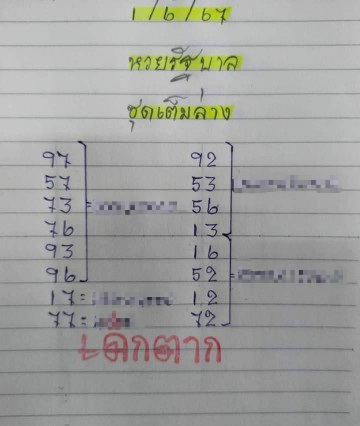 1/6/67
หวยรัฐบาล
ชุดเต็มล่าง
97 92
57 53
73 = 56
76 13
93 16
96 52 =
17 = 12
77 = 72
เด็กตาก